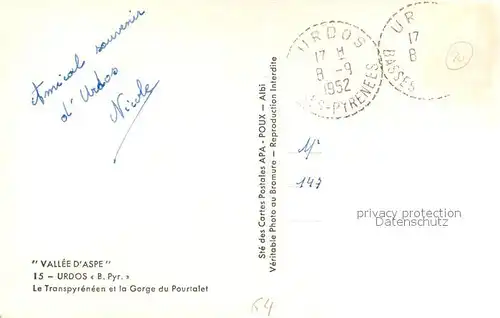 Amical souvenir
d'Urdos
Nicole
URDOS
17 H
8 -9
1952
SES-PYRENEES
UR
17
8
BASSES
Mr
147
privacy protection
copyright protection
Sté des Cartes Postales APA - POUX - Albi
Véritable Photo au Bromure - Reproduction Interdite
" VALLÉE D'ASPE "
15 - URDOS « B. Pyr. »
Le Transpyrénéen et la Gorge du Pourtalet
64